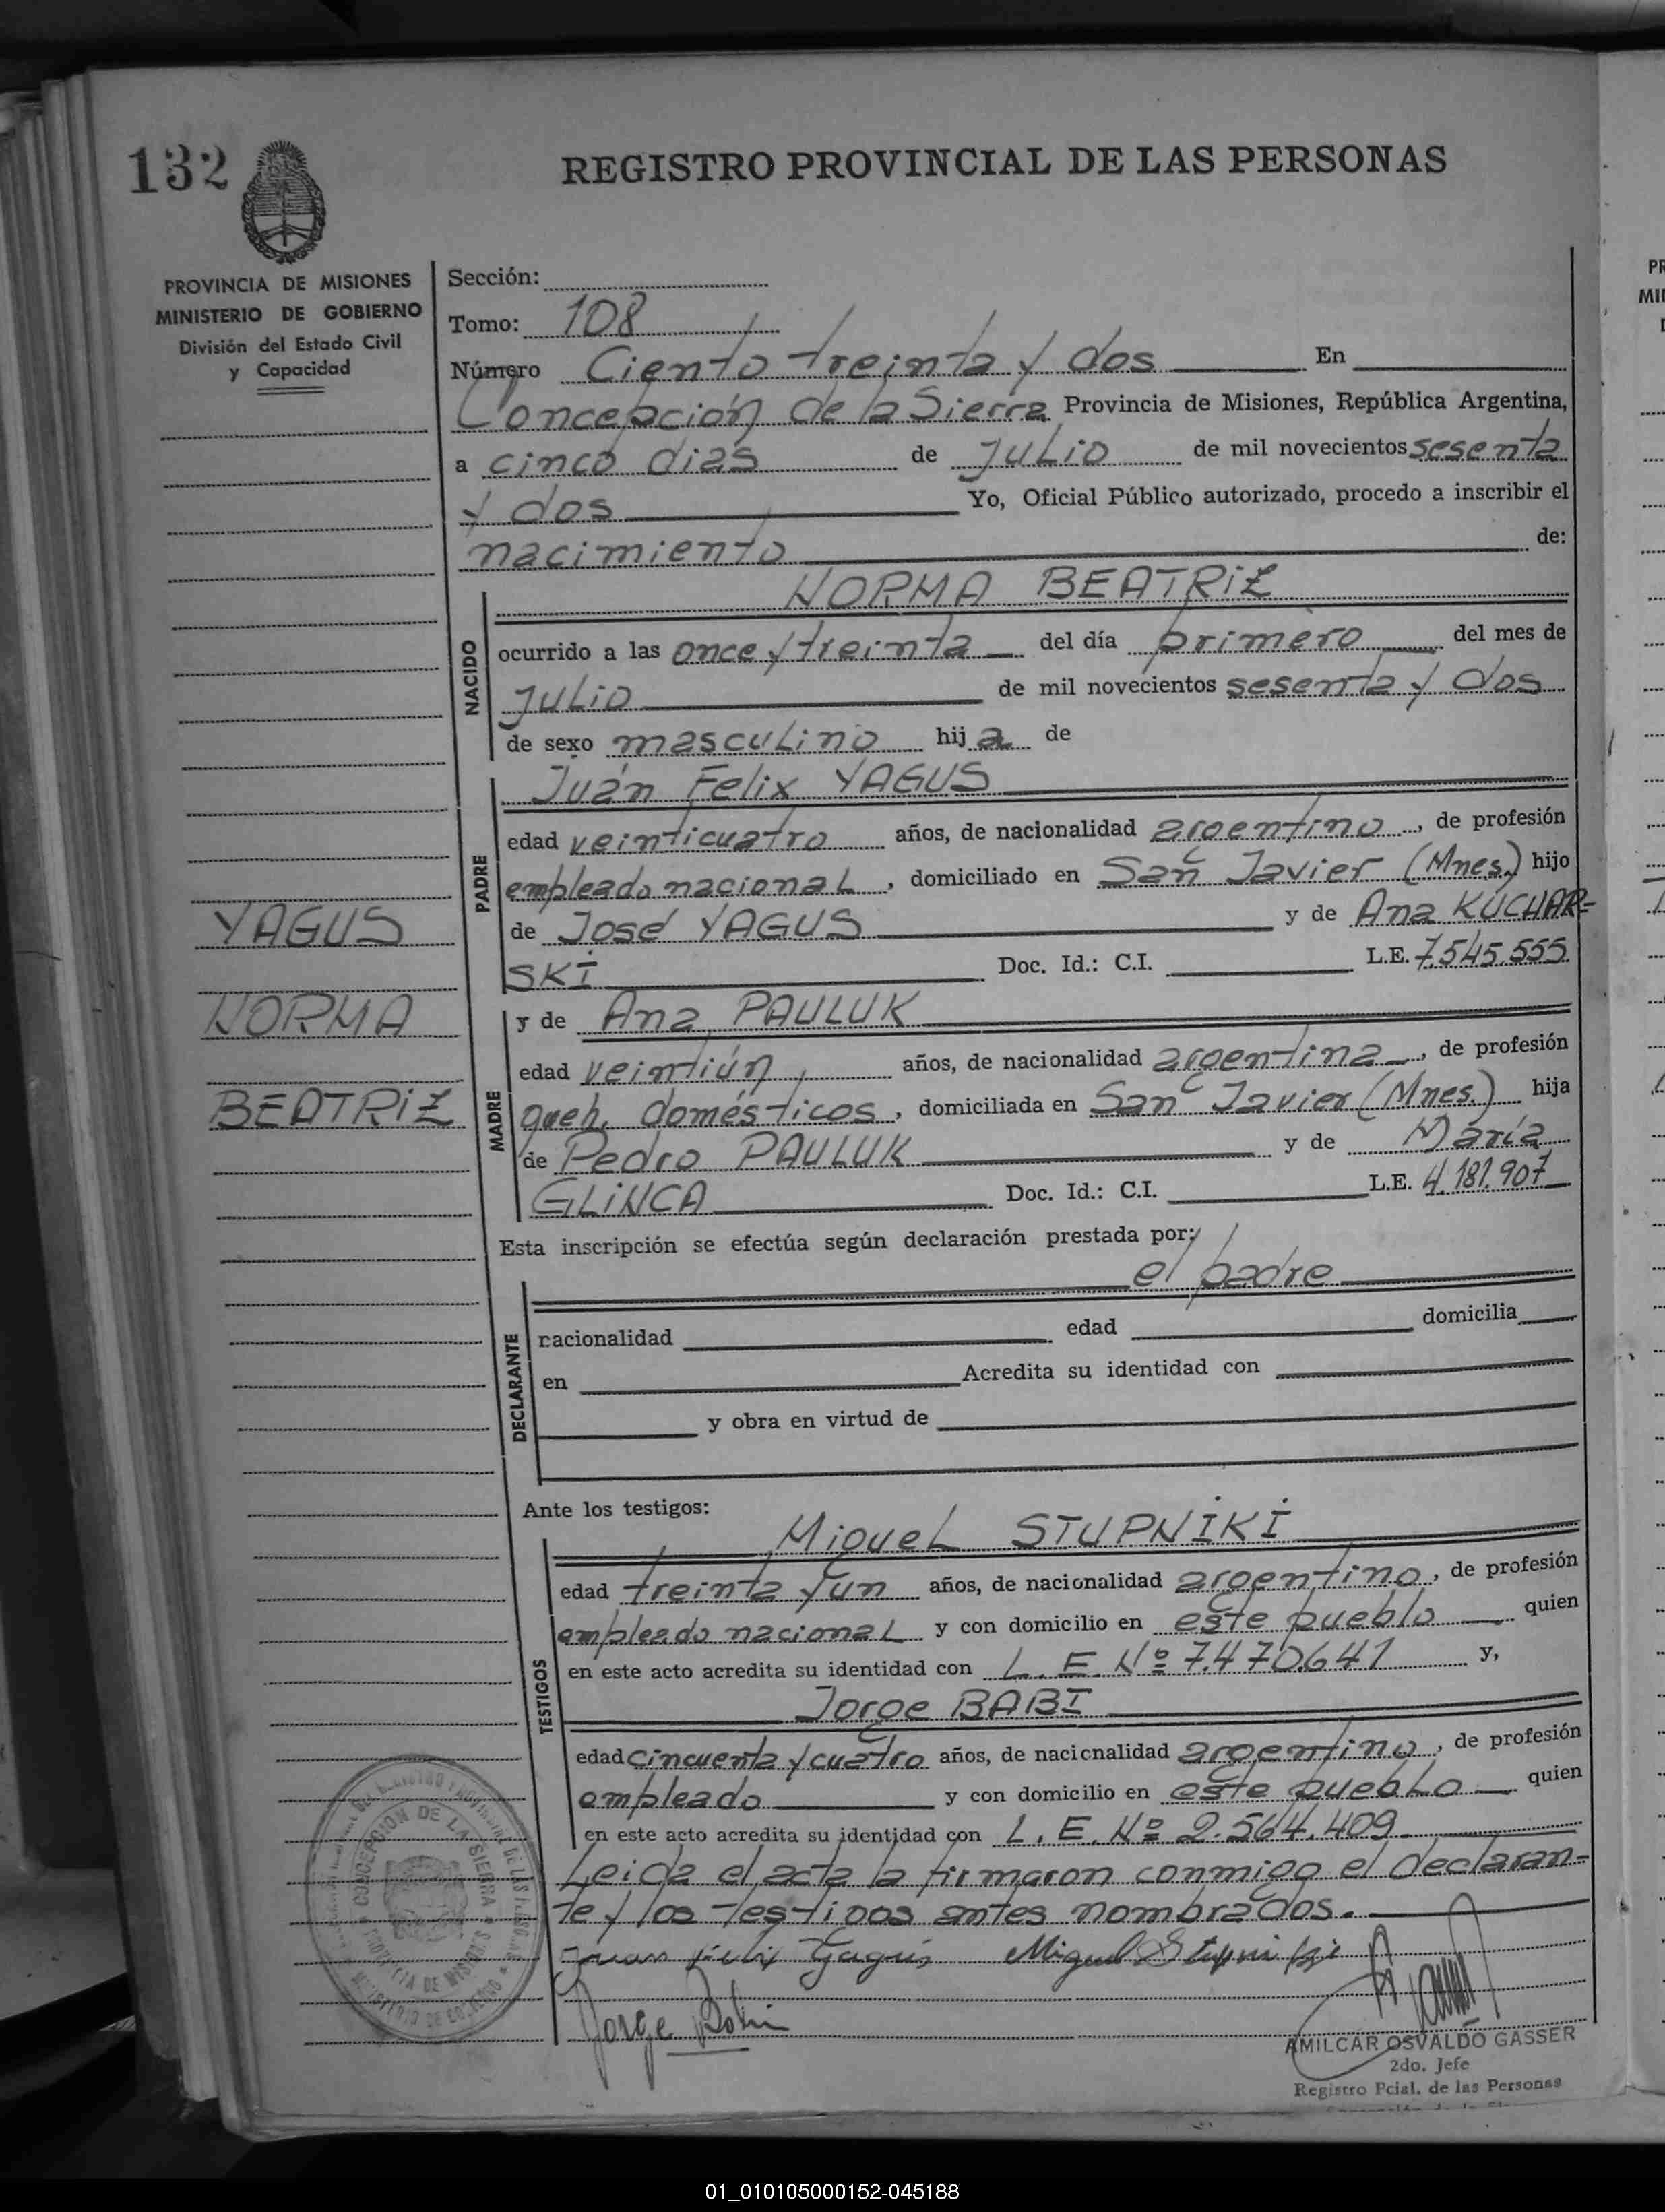 132
REGISTRO PROVINCIAL DE LAS PERSONAS
PROVINCIA DE MISIONES
MINISTERIO DE GOBIERNO
División del Estado Civil
y Capacidad
Sección:
Tomo: 108
Número Ciento treinta y dos En
Concepción de la Sierra Provincia de Misiones, República Argentina,
a cinco dias de julio de mil novecientos sesenta
y dos Yo, Oficial Público autorizado, procedo a inscribir el
nacimiento de:
NACIDO
NORMA BEATRIZ
ocurrido a las once y treinta del día primero del mes de
julio de mil novecientos sesenta y dos
de sexo masculino hija de
PADRE
Juán Felix YAGUS
edad veinticuatro años, de nacionalidad argentino, de profesión
empleado nacional, domiciliado en San Javier (Mnes.) hijo
de José YAGUS y de Ana KUCHAR-
SKI Doc. Id.: C.I. L.E. 7.545.555
YAGUS
NORMA
BEATRIZ
MADRE
y de Ana PAULUK
edad veintiún años, de nacionalidad argentina, de profesión
queh. domésticos, domiciliada en San Javier (Mnes.) hija
de Pedro PAULUK y de María
GLINCA Doc. Id.: C.I. L.E. 4.181.907
Esta inscripción se efectúa según declaración prestada por:
el padre
DECLARANTE
nacionalidad edad domicilia
en Acredita su identidad con
y obra en virtud de
Ante los testigos:
TESTIGOS
Miguel STUPNIKI
edad treinta y un años, de nacionalidad argentino, de profesión
empleado nacional y con domicilio en este pueblo quien
en este acto acredita su identidad con L. E. Nº 7.470.641 y,
Jorge BABI
edad cincuenta y cuatro años, de nacionalidad argentino, de profesión
empleado y con domicilio en este pueblo quien
en este acto acredita su identidad con L. E. Nº 2.564.409
Leida el acta la firmaron conmigo el declaran-
te y los testigos antes nombrados.
Juan Felix Yagus Miguel Stupniki
Jorge
CONCEPCION DE LA SIERRA
PROVINCIA DE MISIONES
MINISTERIO DE GOBIERNO
AMILCAR OSVALDO GASSER
2do. Jefe
Registro Pcial. de las Personas
01_010105000152-045188